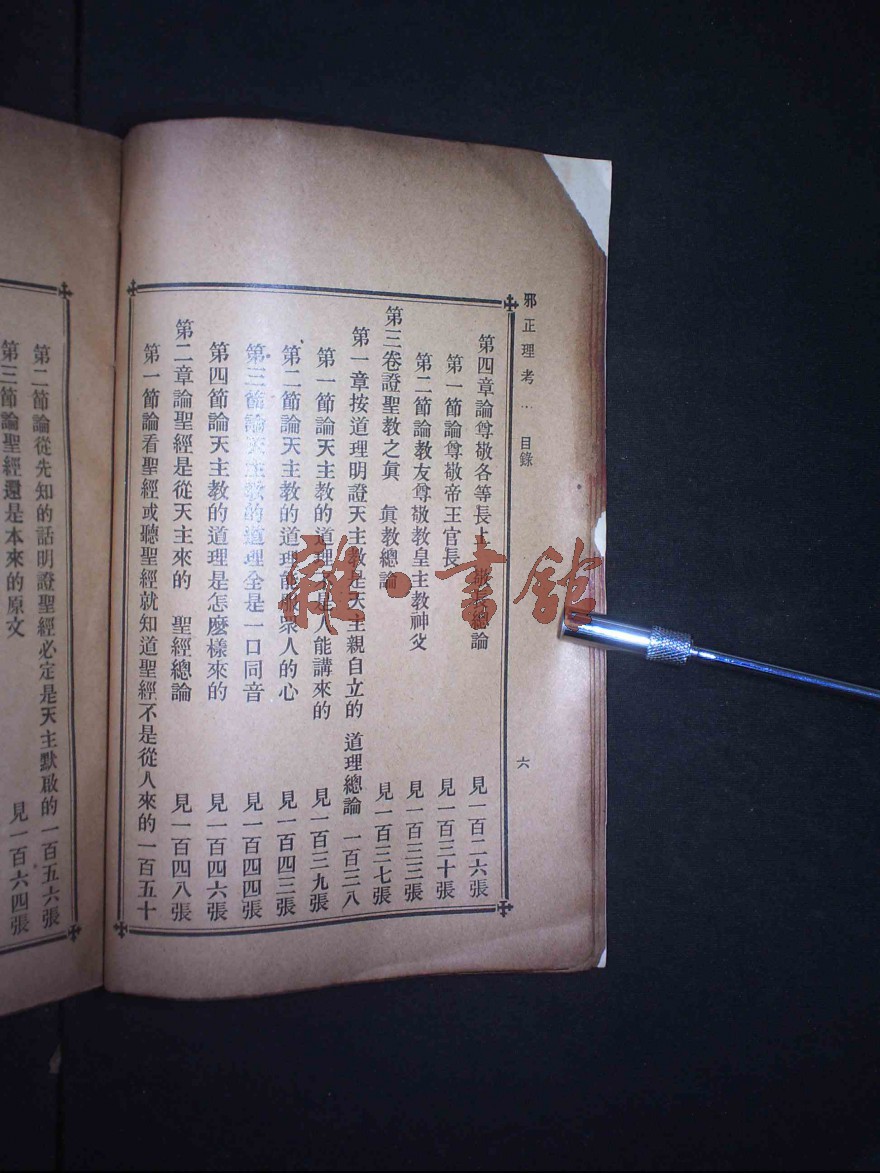 邪正理考 ... 目錄 六
第四章論尊敬各等長上 敬長總論 見一百二六張
第一節論尊敬帝王官長 見一百三十張
第二節論教友尊敬教皇主教神父 見一百三三張
第三卷證聖教之眞 眞教總論 見一百三七張
第一章按道理明證天主教是天主親自立的 道理總論 一百三八
第一節論天主教的道理不是人能講來的 見一百三九張
第二節論天主教的道理能服眾人的心 見一百四三張
第三節論天主教的道理全是一口同音 見一百四四張
第四節論天主教的道理是怎麽樣來的 見一百四六張
第二章論聖經是從天主來的 聖經總論 見一百四八張
第一節論看聖經或聽聖經就知道聖經不是從人來的 一百五十
第二節論從先知的話明證聖經必定是天主默啟的 一百五六張
第三節論聖經還是本來的原文 見一百六四張
雜·書館